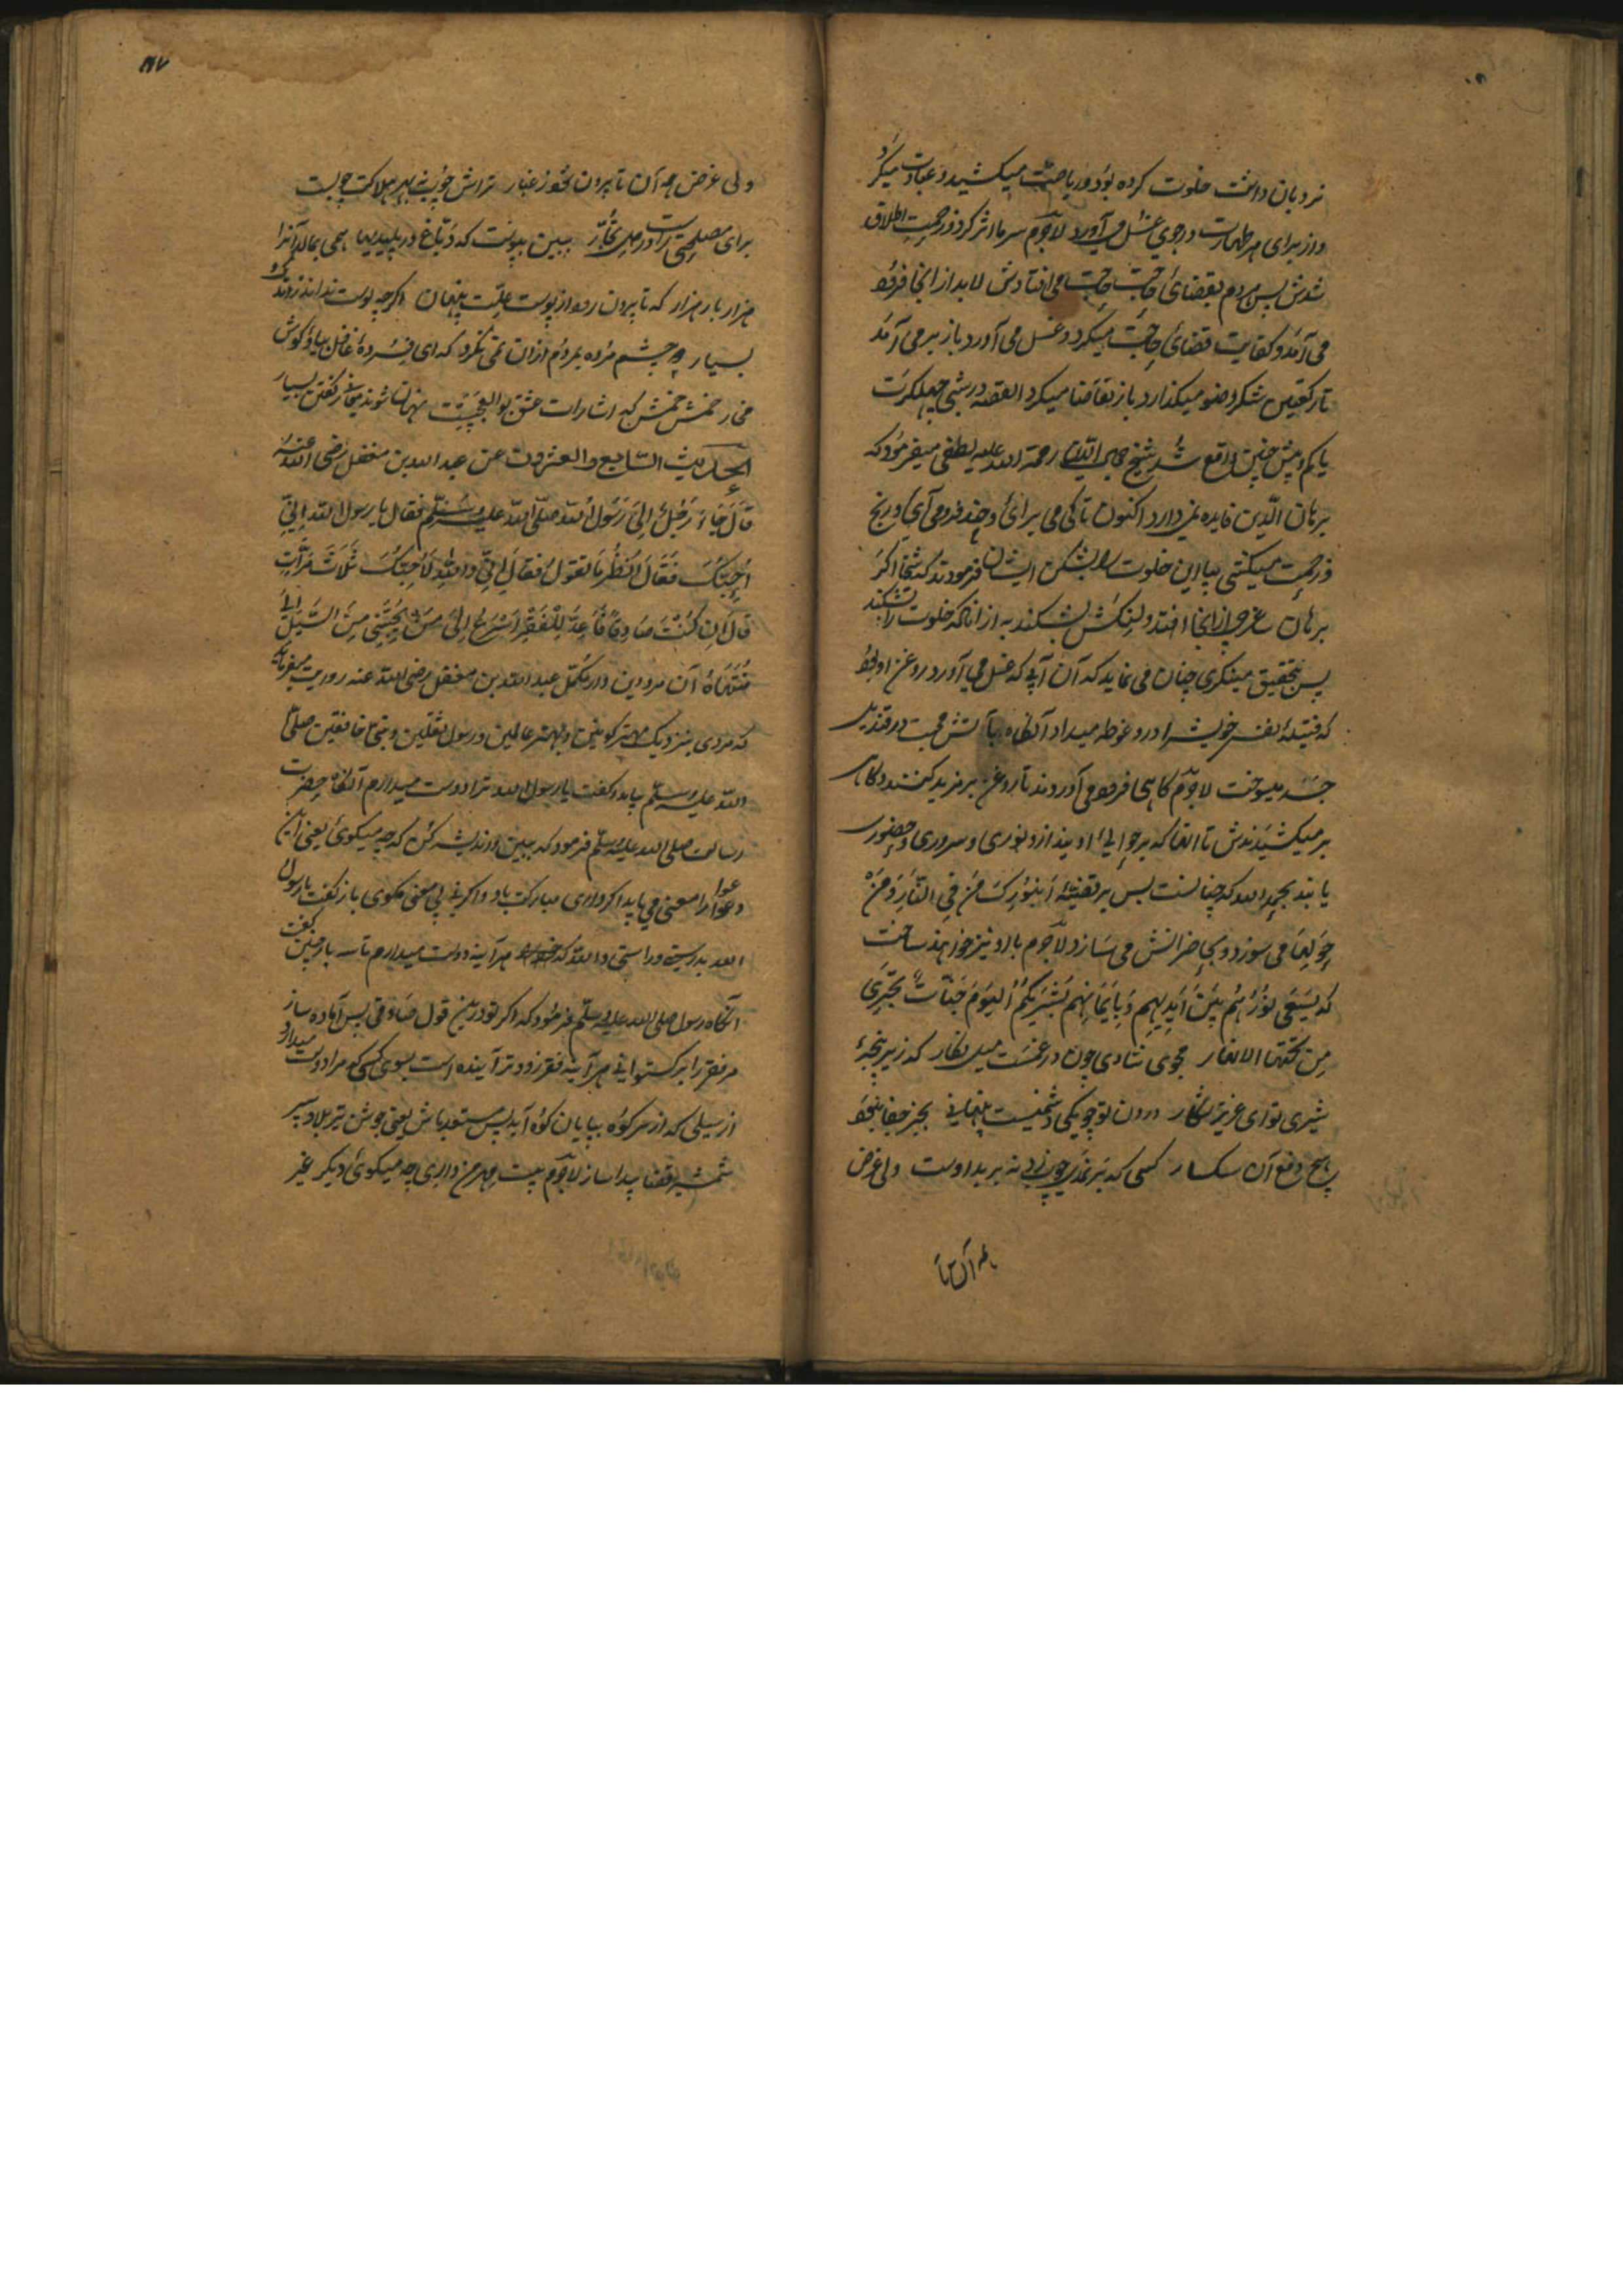 نردبان داشت خلوت کرده بود و ریاضت میکشید و عبادت میکرد
و از برای هر طهارت در جوی غسل می‌آورد لاجرم سرما اثر کرد و زحمت اطلاق
شدش پس هردم بقضای حاجت حاجت می افتادش لابد از انجا فرود
می آمد و کفایت قضای حاجت میکرد و غسل می آورد باز بر می آمد
تا رکعتین شکر وضو میکذارد باز تقاضا میکرد القصه در شبی چهل کرت
یا کم و بیش چنین واقع شد شیخ رحمة الله علیه لطفی میفرمود که
برهان الدین فایده نمی دارد اکنون تا کی می برائی و چند فرو می آی و رنج
و زحمت میکشی بیا این خلوت را بشکن ایشان فرمودند که شیخا اگر
برهان غرچه از انجا افتد و لنکش بشکند به از انکه خلوت را بشکند
پس بتحقیق مینکری چنان می نماید که آن آبی که غسل می آورد روغن او بود
که فتیلهٔ نفس خویش را درو غوطه میداد آنکاه بآتش محبت در قندیل
جسد میسوخت لاجرم کاهی فرود می آوردند تا روغن بر مزید کنند و کاهی
بر میکشیدندش تا آنها که بر حوالی او بیند ازو نوری و سروری و حضوری
یابند بحمد الله که چنانست پس بر قضیهٔ ان بورک من فی النار ومن
حولها می سوزد و بحاضرانش می سازد لاجرم با او نیز خواهند ساخت
که یسعی نورهم بین ایدیهم و بایمانهم بشریکم الیوم جنات تجری
من تحتها الانهار مجوی شادی چون در غمست میل نکار که در پنجهٔ
شیری تو ای عزیز شکار درون تو چو یکی دشمنیست پنهانی بجز جفا نبود
هیچ دفع آن سکسار کسی که بر نمدی چوب زد نه بر بد اوست ولی غرض
همه آن تا
ولی غرض همه آن تا برون شود ز غبار تراش چوب نه بهر هلاکت چوبست
برای مصلحتی راست در دل نجار ببین بپوست که دباغ در پلیدیها همی بمالد آنرا
هزار بار هزار که تا برون رود از پوست علت پنهان اکرچه پوست نداند ز اندک و
بسیار چو چشم مرده بمردم ازان نمی نکرد که ای فسردهٔ غافل بیا و کوش
مخار خمش خمش که اشارات عشق بوالعجبیست نهان شوند معانی ز کفتن بسیار
الحدیث السابع والعشرون عن عبد الله بن مغفل رضی الله عنه
قال جاء رجل الی رسول الله صلی الله علیه وسلم فقال یا رسول الله انی
احبک فقال انظر ما تقول فقال انی والله لاحبک ثلاث مرات
قال ان کنت صادقا فاعد للفقر اسرع الی من یحبنی من السیل الی
منتهاه آن مرد دین دار مکمل عبد الله بن مغفل رضی الله عنه روایت میفرماید
که مردی بنزدیک مهتر کونین و بهتر عالمین و رسول ثقلین و نبی خافقین صلی
الله علیه وسلم بیامد و کفت یا رسول الله ترا دوست میدارم آنکاه حضرت
رسالت صلی الله علیه وسلم فرمود که ببین و اندیشه کن که چه میکوئی یعنی این
دعوا را معنی می باید اکر داری مبارکت باد و اکر نه بی معنی مکوی باز کفت یا رسول
الله بدرستی و راستی والله که هر آینه دوست میدارم تا سه بار چنین کفت
آنکاه رسول صلی الله علیه وسلم فرمود که اکر تو درین قول صادقی پس آماده ساز
مر فقر را برکستوانی هر آینه فقر زودتر آینده است بسوی کسی کو مرا دوست میدارد
از سیلی که از سر کوه بپایان کوه آید پس مستعد باش یعنی جوشن تیر بلا و سپر
شمشیر قضا پیدا ساز لاجرم بیت هرچ داری چه میکوئی دیکر غیر